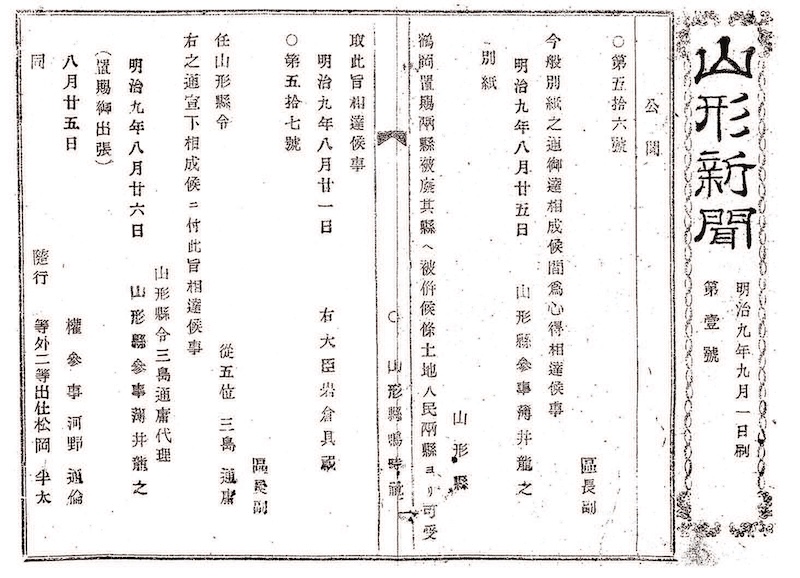 山形新聞
明治九年九月一日刷
第壹號
公聞
○第五拾六號
區長副
今般別紙之通御達相成候間爲心得相達候事
明治九年八月廿五日 山形縣參事薄井龍之
別紙
山形縣
鶴岡置賜兩縣被廢其縣ヘ被併候條土地人民兩縣ヨリ可受
○ 山形縣鳴時社 一
取此旨相達候事
明治九年八月廿一日 右大臣岩倉具視
○第五拾七號
區長副
任山形縣令 從五位 三島通庸
右之通宣下相成候ニ付此旨相達候事
山形縣令三島通庸代理
明治九年八月廿六日 山形縣參事薄井龍之
(置賜御出張)
八月廿五日 權參事河野通倫
同 隨行 等外二等出仕松岡半太